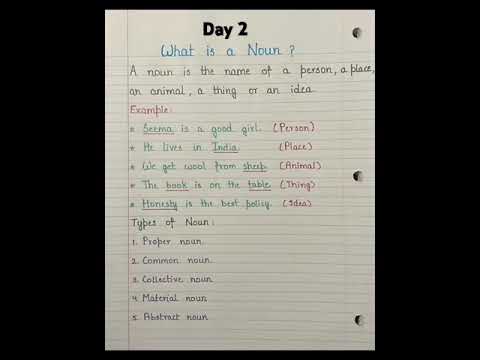 Day 2
What is a Noun ?
A noun is the name of a person, a place,
an animal, a thing or an idea
Example:
* Seema is a good girl. (Person)
* He lives in India. (Place)
* We get wool from sheep. (Animal)
* The book is on the table. (Thing)
* Honesty is the best policy. (Idea)
Types of Noun:
1. Proper noun.
2. Common noun.
3. Collective noun
4. Material noun
5. Abstract noun